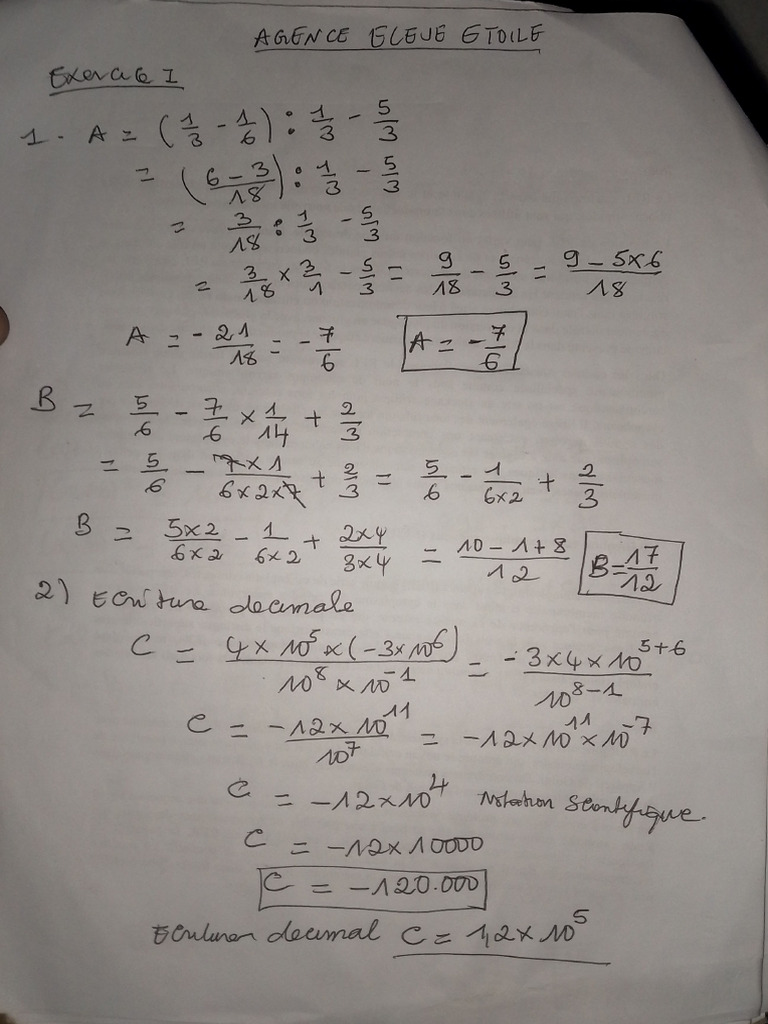 AGENCE ELEVE ETOILE
Exercice I
1 - A = (1/3 - 1/6) : 1/3 - 5/3
= ((6 - 3)/18) : 1/3 - 5/3
= 3/18 : 1/3 - 5/3
= 3/18 × 3/1 - 5/3 = 9/18 - 5/3 = (9 - 5×6)/18
A = -21/18 = -7/6 A = -7/6
B = 5/6 - 7/6 × 1/14 + 2/3
= 5/6 - (7×1)/(6×2×7) + 2/3 = 5/6 - 1/(6×2) + 2/3
B = (5×2)/(6×2) - 1/(6×2) + (2×4)/(3×4) = (10 - 1 + 8)/12 B = 17/12
2) Ecriture decimale
C = (4 × 10⁵ × (-3×10⁶))/(10⁸ × 10⁻¹) = (-3×4×10⁵⁺⁶)/(10⁸⁻¹)
C = (-12×10¹¹)/10⁷ = -12×10¹¹×10⁻⁷
C = -12×10⁴ Notation Scientifique.
C = -12×10000
C = -120.000
decimal C = 1,2×10⁵